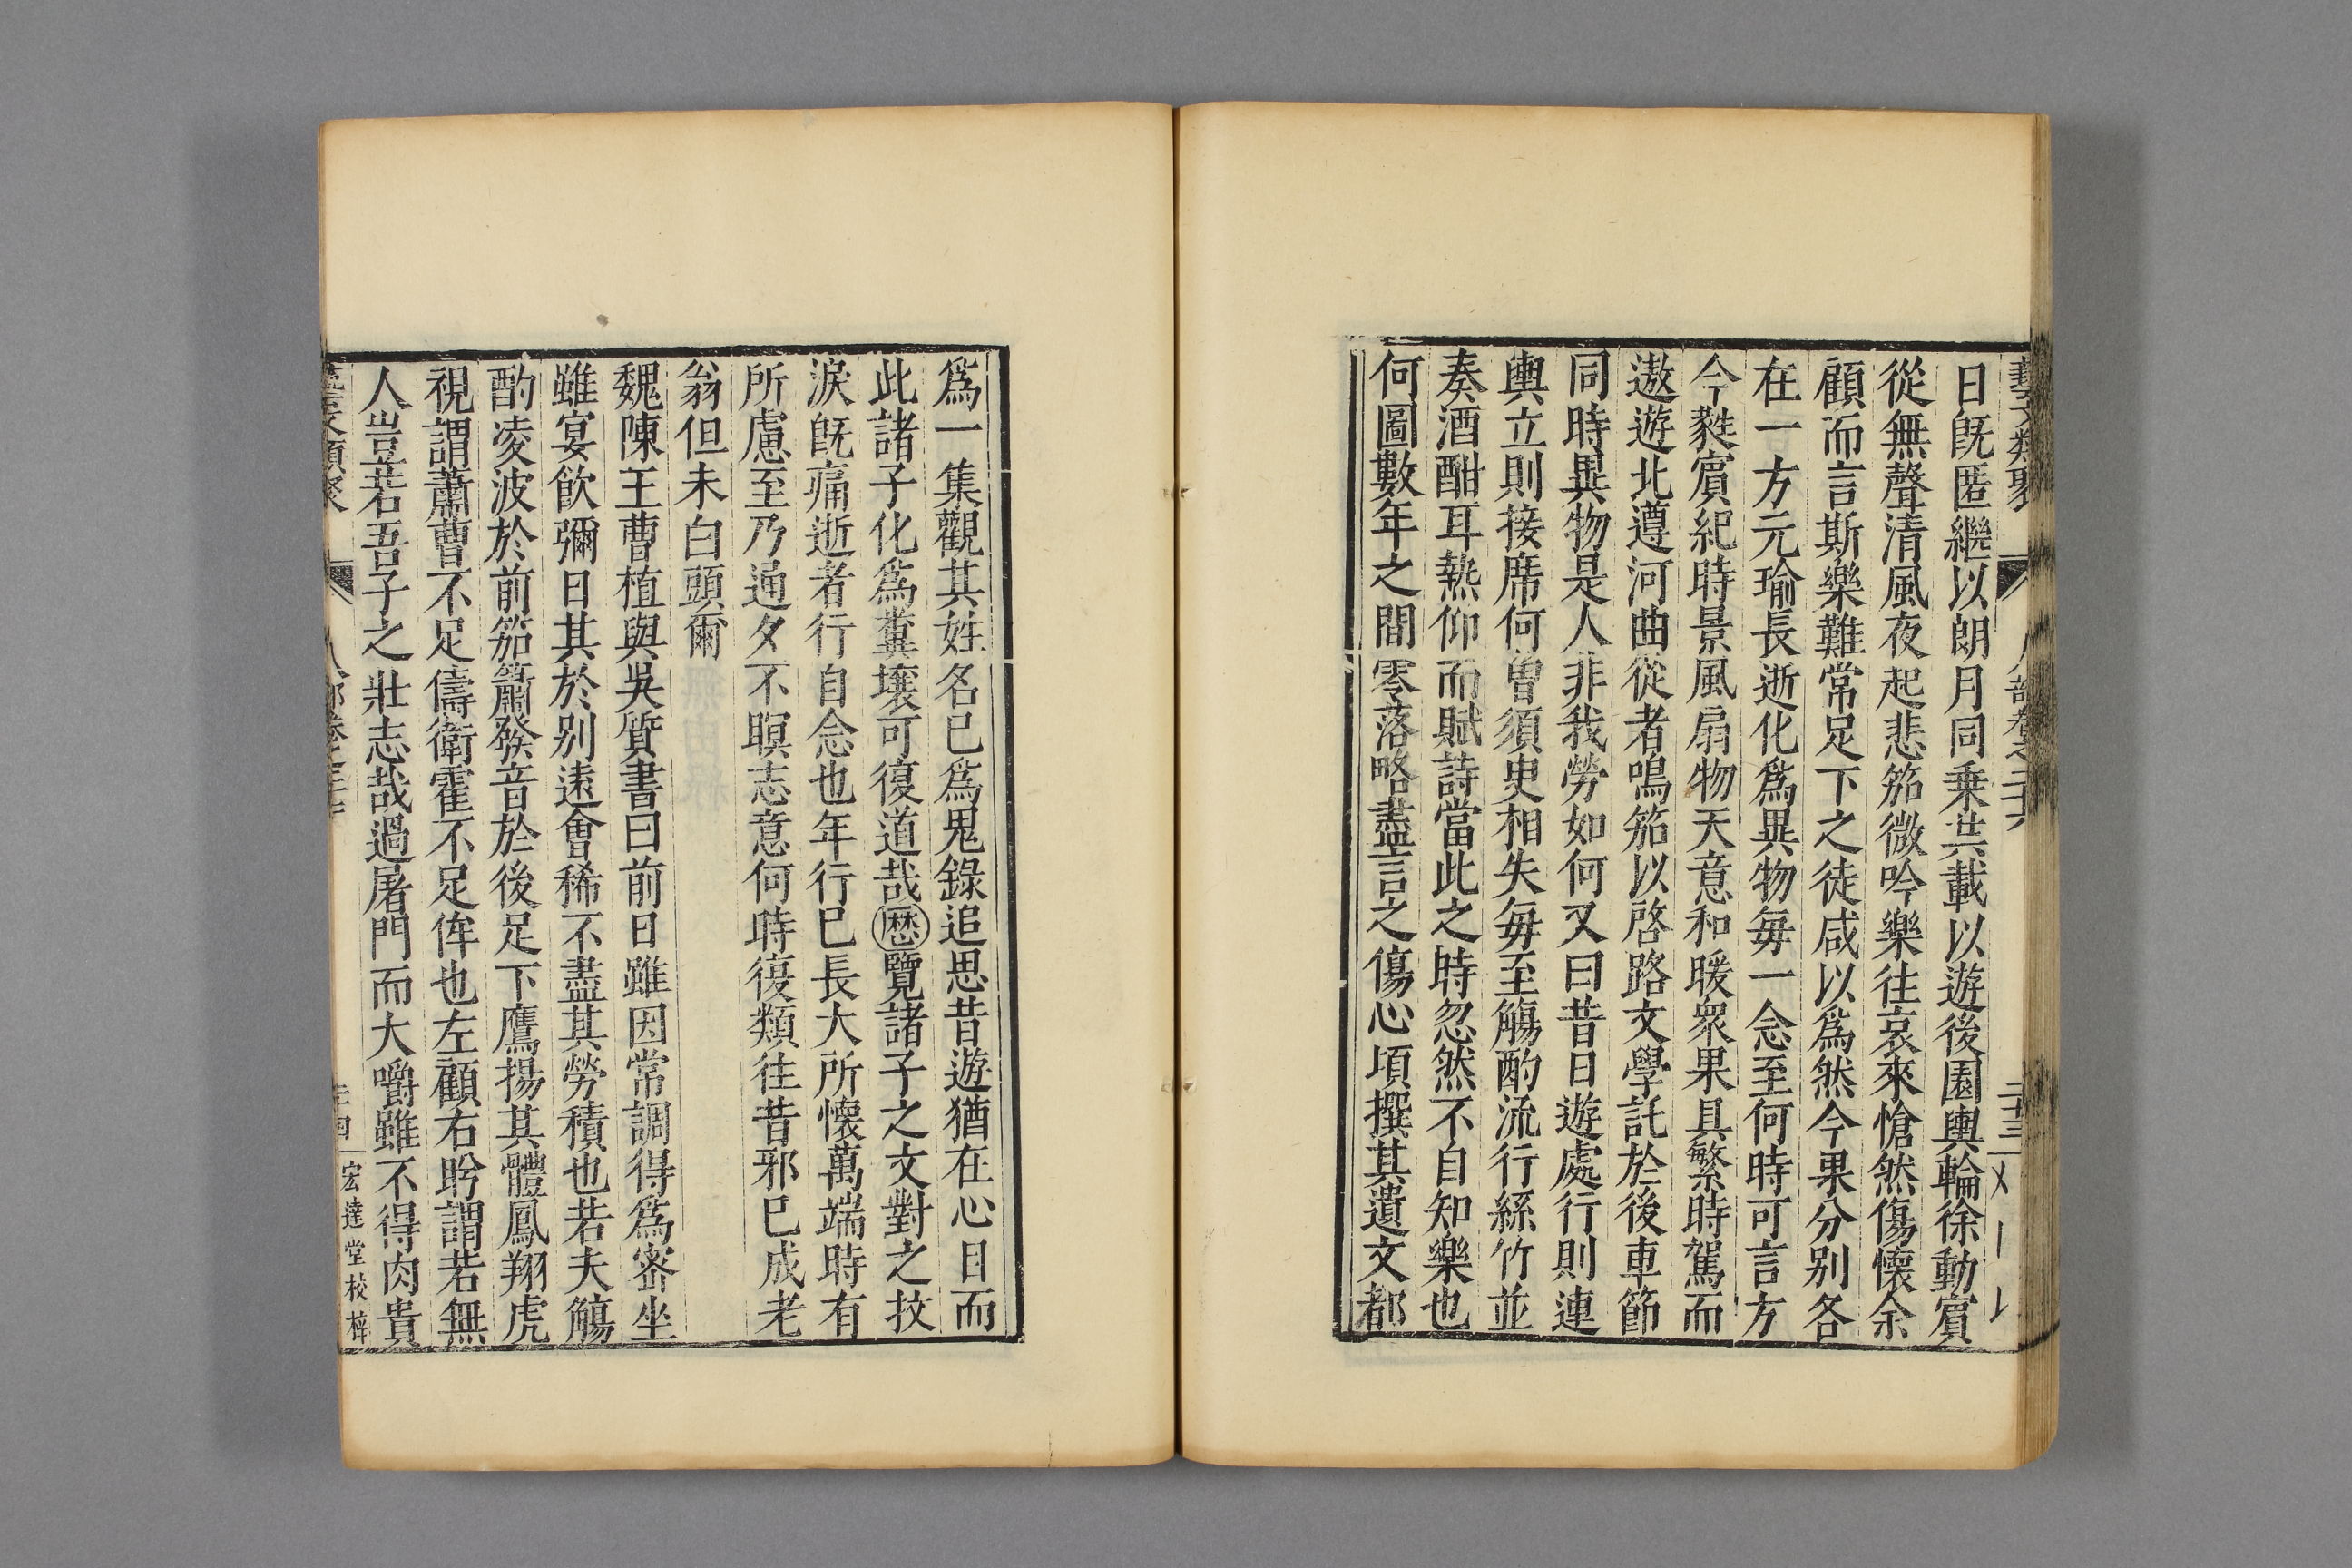 日旣匿繼以朗月同乗共載以遊後園輿輪徐動賔
從無聲清風夜起悲笳微吟樂往哀來愴然傷懷余
顧而言斯樂難常足下之徒咸以爲然今果分别各
在一方元瑜長逝化爲異物毎一念至何時可言方
今蕤賔紀時景風扇物天意和暖衆果具繁時駕而
遨遊北遵河曲從者鳴笳以啓路文學託於後車節
同時異物是人非我勞如何又曰昔日遊處行則連
輿立則接席何曽須史相失毎至觴酌流行絲竹並
奏酒酣耳熱仰而賦詩當此之時忽然不自知樂也
何圖數年之間零落略盡言之傷心頃撰其遺文都
爲一集觀其姓名已爲鬼錄追思昔遊猶在心目而
此諸子化爲糞壤可復道哉歷覽諸子之文對之抆
淚旣痛逝者行自念也年行已長大所懷萬端時有
所慮至乃通夕不暝志意何時復類往昔邪已成老
翁但未白頭爾
魏陳王曹植與吳質書曰前日雖因常調得爲密坐
雖宴飮彌日其於别遠會稀不盡其勞積也若夫觴
酌凌波於前笳簫發音於後足下鷹揚其體鳳翔虎
視謂蕭曹不足儔衛霍不足侔也左顧右盻謂若無
人豈若吾子之壯志哉過屠門而大嚼雖不得肉貴
宏達堂校梓